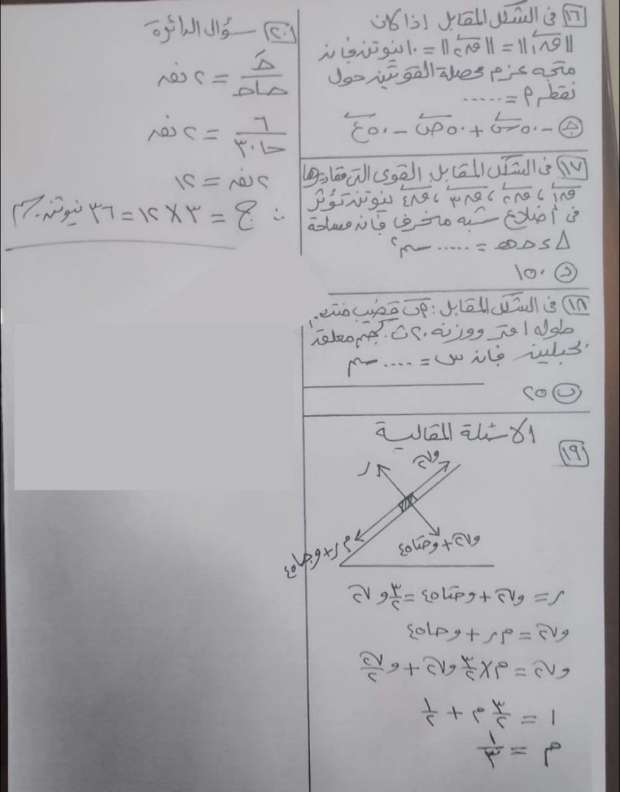 ١٦ فى الشكل المقابل إذا كان
||ق١|| = ||ق٢|| = ١٠ نيوتن فإن
متجه عزم محصلة القوتين حول
نقطة م = .....
ج - ٥٠ س + ٥٠ ص - ٥٠ ع
١٧ فى الشكل المقابل القوى التى مقاديرها
ق١ ، ق٢ ، ق٣ ، ق٤ نيوتن تؤثر
فى أضلاع شبه منحرف فإن مساحة
Δ ء ح هـ = ..... سم٢
د ١٥٠
١٨ فى الشكل المقابل : قضيب منتظم
طوله ١ متر ووزنه ٢٠ ث.كجم معلق
بحبلين فإن س = .... سم
ب ٢٥
الأسئلة المقالية
١٩
ر
و√٢
م ر + و حا٤٥
و√٢ + و حتا٤٥
ر = و√٢ + و حتا٤٥ = ٣/٢ و√٢
و√٢ = م ر + و حا٤٥
و√٢ = م × ٣/٢ و√٢ + و √٢/٢
١ = ٣/٢ م + ١/٢
م = ١/٣
٢٠ سؤال الدائرة
= ٢ نق
٦/حا٣٠ = ٢ نق
٢ نق = ١٢
∴ ج = ٣ × ١٢ = ٣٦ نيوتن.سم